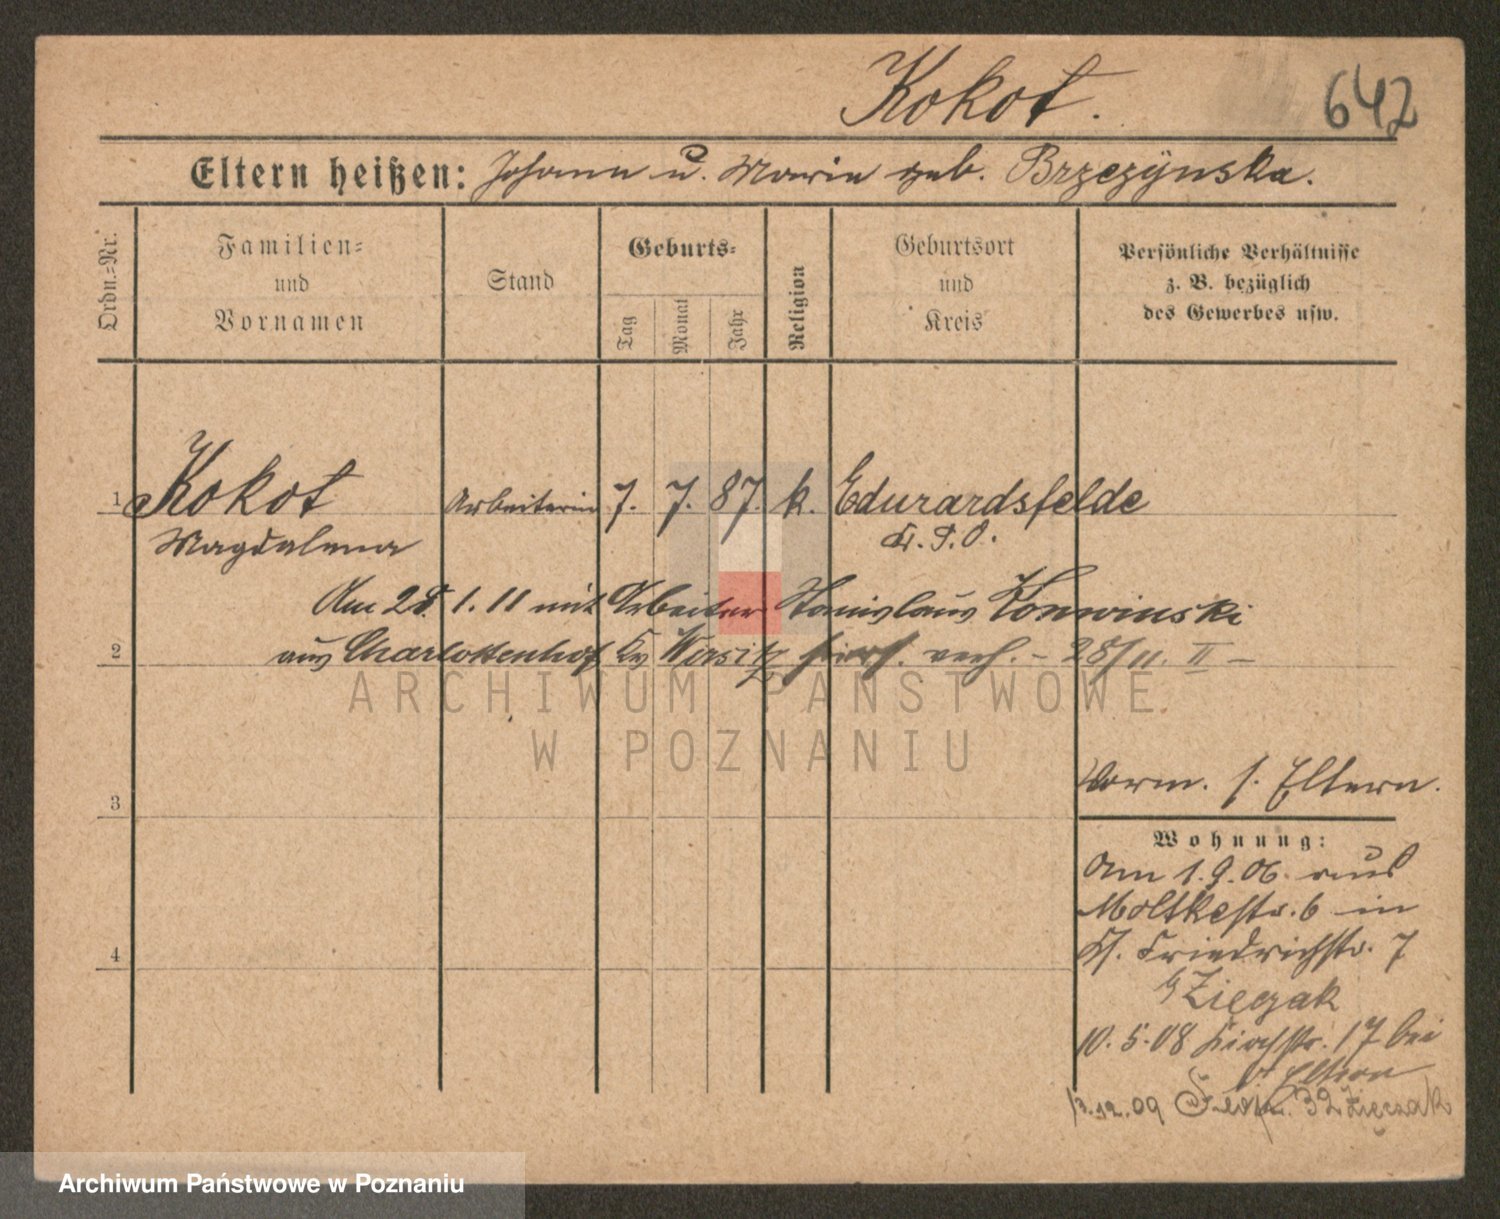 Kokot.
642
Eltern heißen: Johann u. Maria geb. Brzezÿnska.
Ordn.-Nr.
Familien- und Vornamen
Stand
Geburts-
Tag
Monat
Jahr
Religion
Geburtsort und Kreis
Persönliche Verhältnisse z. B. bezüglich des Gewerbes usw.
1 Kokot Arbeiterin 7. 7. 87. k. Eduardsfelde
Magdalena Kr. P. O.
Am 28. 1. 11 mit Arbeiter Stanislaus Konwinski
2 aus Charlottenhof Kr Wirsitz verh. – 28/11. II –
ARCHIWUM PAŃSTWOWE
W POZNANIU
3 Vorm. s. Eltern.
Wohnung:
Am 1.9.06. aus
Moltkestr. 6 in
Friedrichstr. 7
Zięczak
4
10.5.08 Kirchstr. 17 bei
Eltern
13.12.09 32 Zięczak
Archiwum Państwowe w Poznaniu